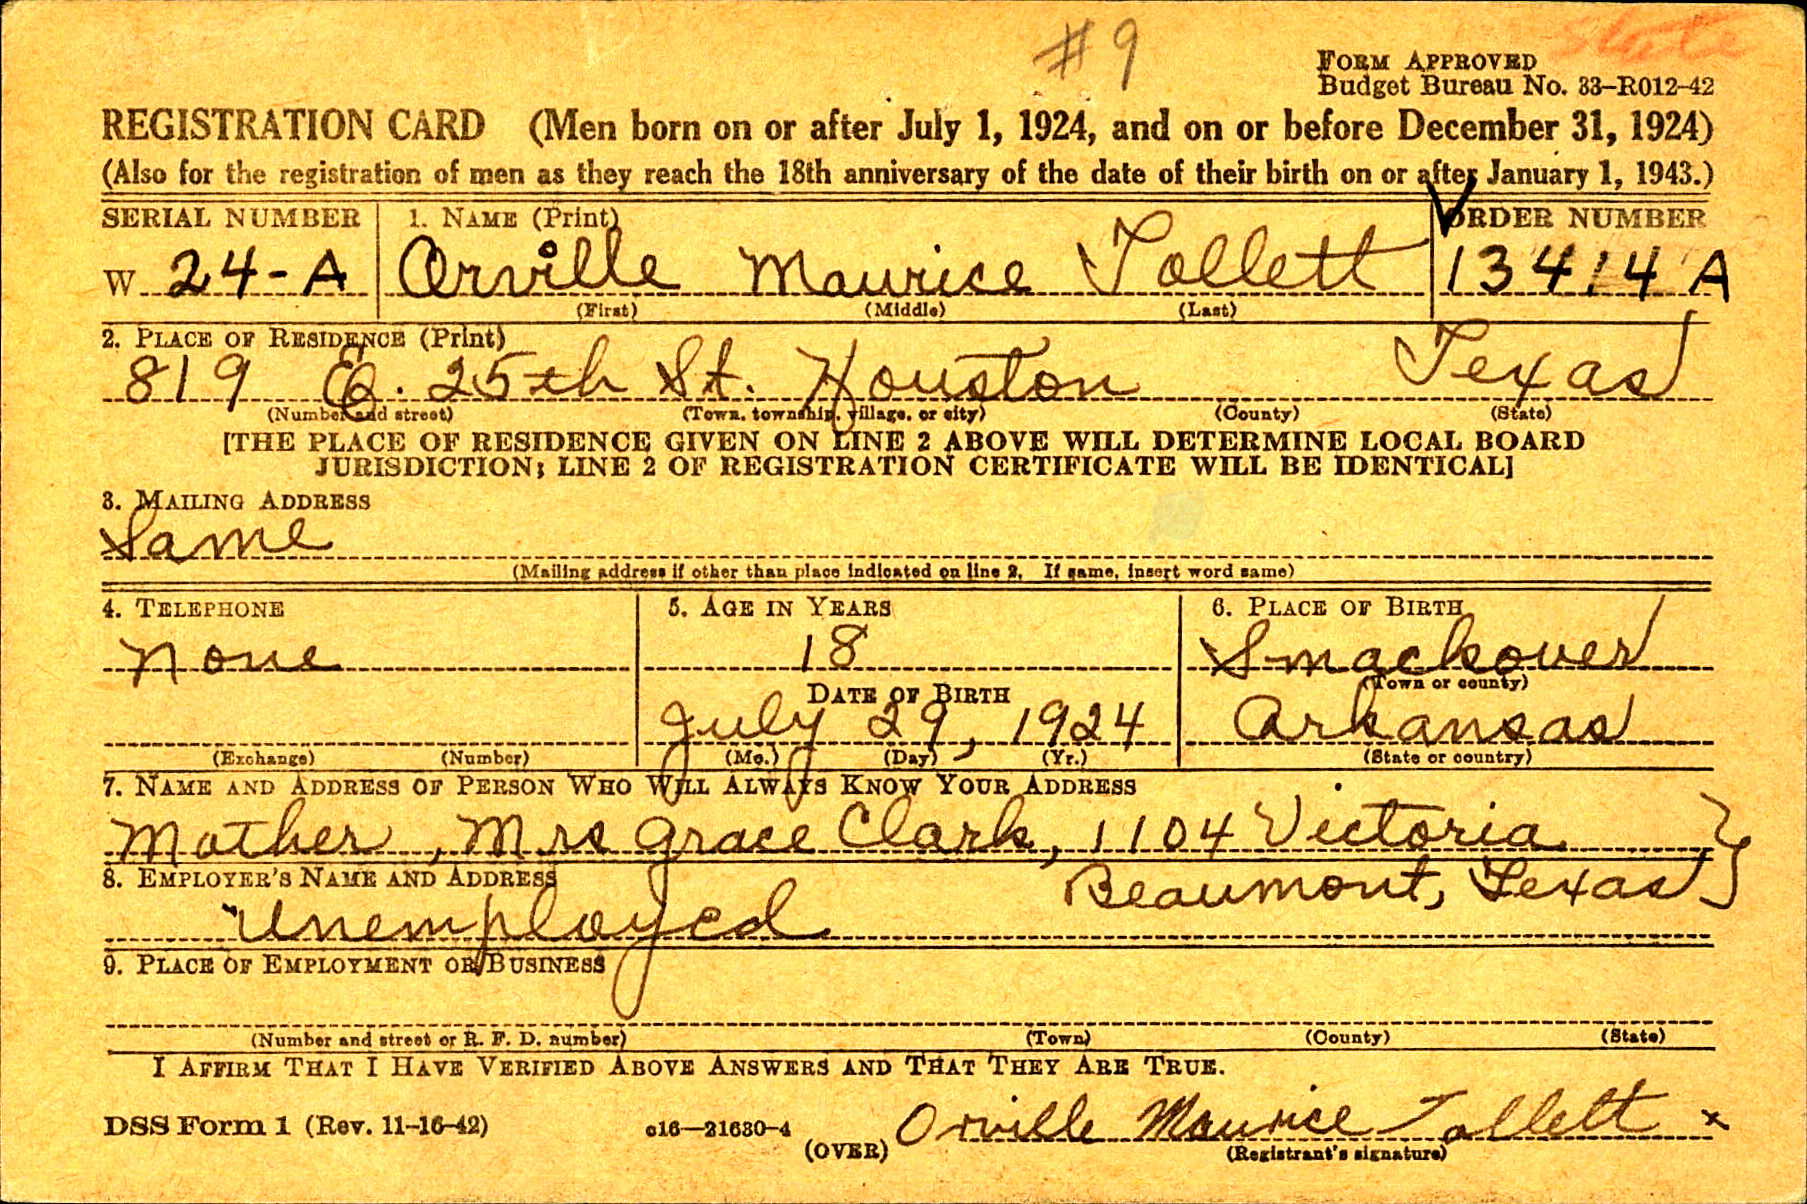 # 9
State
FORM APPROVED
Budget Bureau No. 33–R012–42
REGISTRATION CARD (Men born on or after July 1, 1924, and on or before December 31, 1924)
(Also for the registration of men as they reach the 18th anniversary of the date of their birth on or after January 1, 1943.)
SERIAL NUMBER 1. NAME (Print) ORDER NUMBER
W 24-A Orville Maurice Tollett 13414 A
(First) (Middle) (Last)
2. PLACE OF RESIDENCE (Print)
819 E. 25th St. Houston Texas
(Number and street) (Town, township, village, or city) (County) (State)
[THE PLACE OF RESIDENCE GIVEN ON LINE 2 ABOVE WILL DETERMINE LOCAL BOARD
JURISDICTION; LINE 2 OF REGISTRATION CERTIFICATE WILL BE IDENTICAL]
3. MAILING ADDRESS
Same
(Mailing address if other than place indicated on line 2. If same, insert word same)
4. TELEPHONE 5. AGE IN YEARS 6. PLACE OF BIRTH
None 18 Smackover
(Town or county)
DATE OF BIRTH
July 29, 1924 Arkansas
(Exchange) (Number) (Mo.) (Day) (Yr.) (State or country)
7. NAME AND ADDRESS OF PERSON WHO WILL ALWAYS KNOW YOUR ADDRESS
Mother, Mrs Grace Clark, 1104 Victoria
8. EMPLOYER'S NAME AND ADDRESS Beaumont, Texas
Unemployed
9. PLACE OF EMPLOYMENT OR BUSINESS
(Number and street or R. F. D. number) (Town) (County) (State)
I AFFIRM THAT I HAVE VERIFIED ABOVE ANSWERS AND THAT THEY ARE TRUE.
DSS Form 1 (Rev. 11-16-42) c16—21630-4 Orville Maurice Tollett x
(OVER) (Registrant's signature)